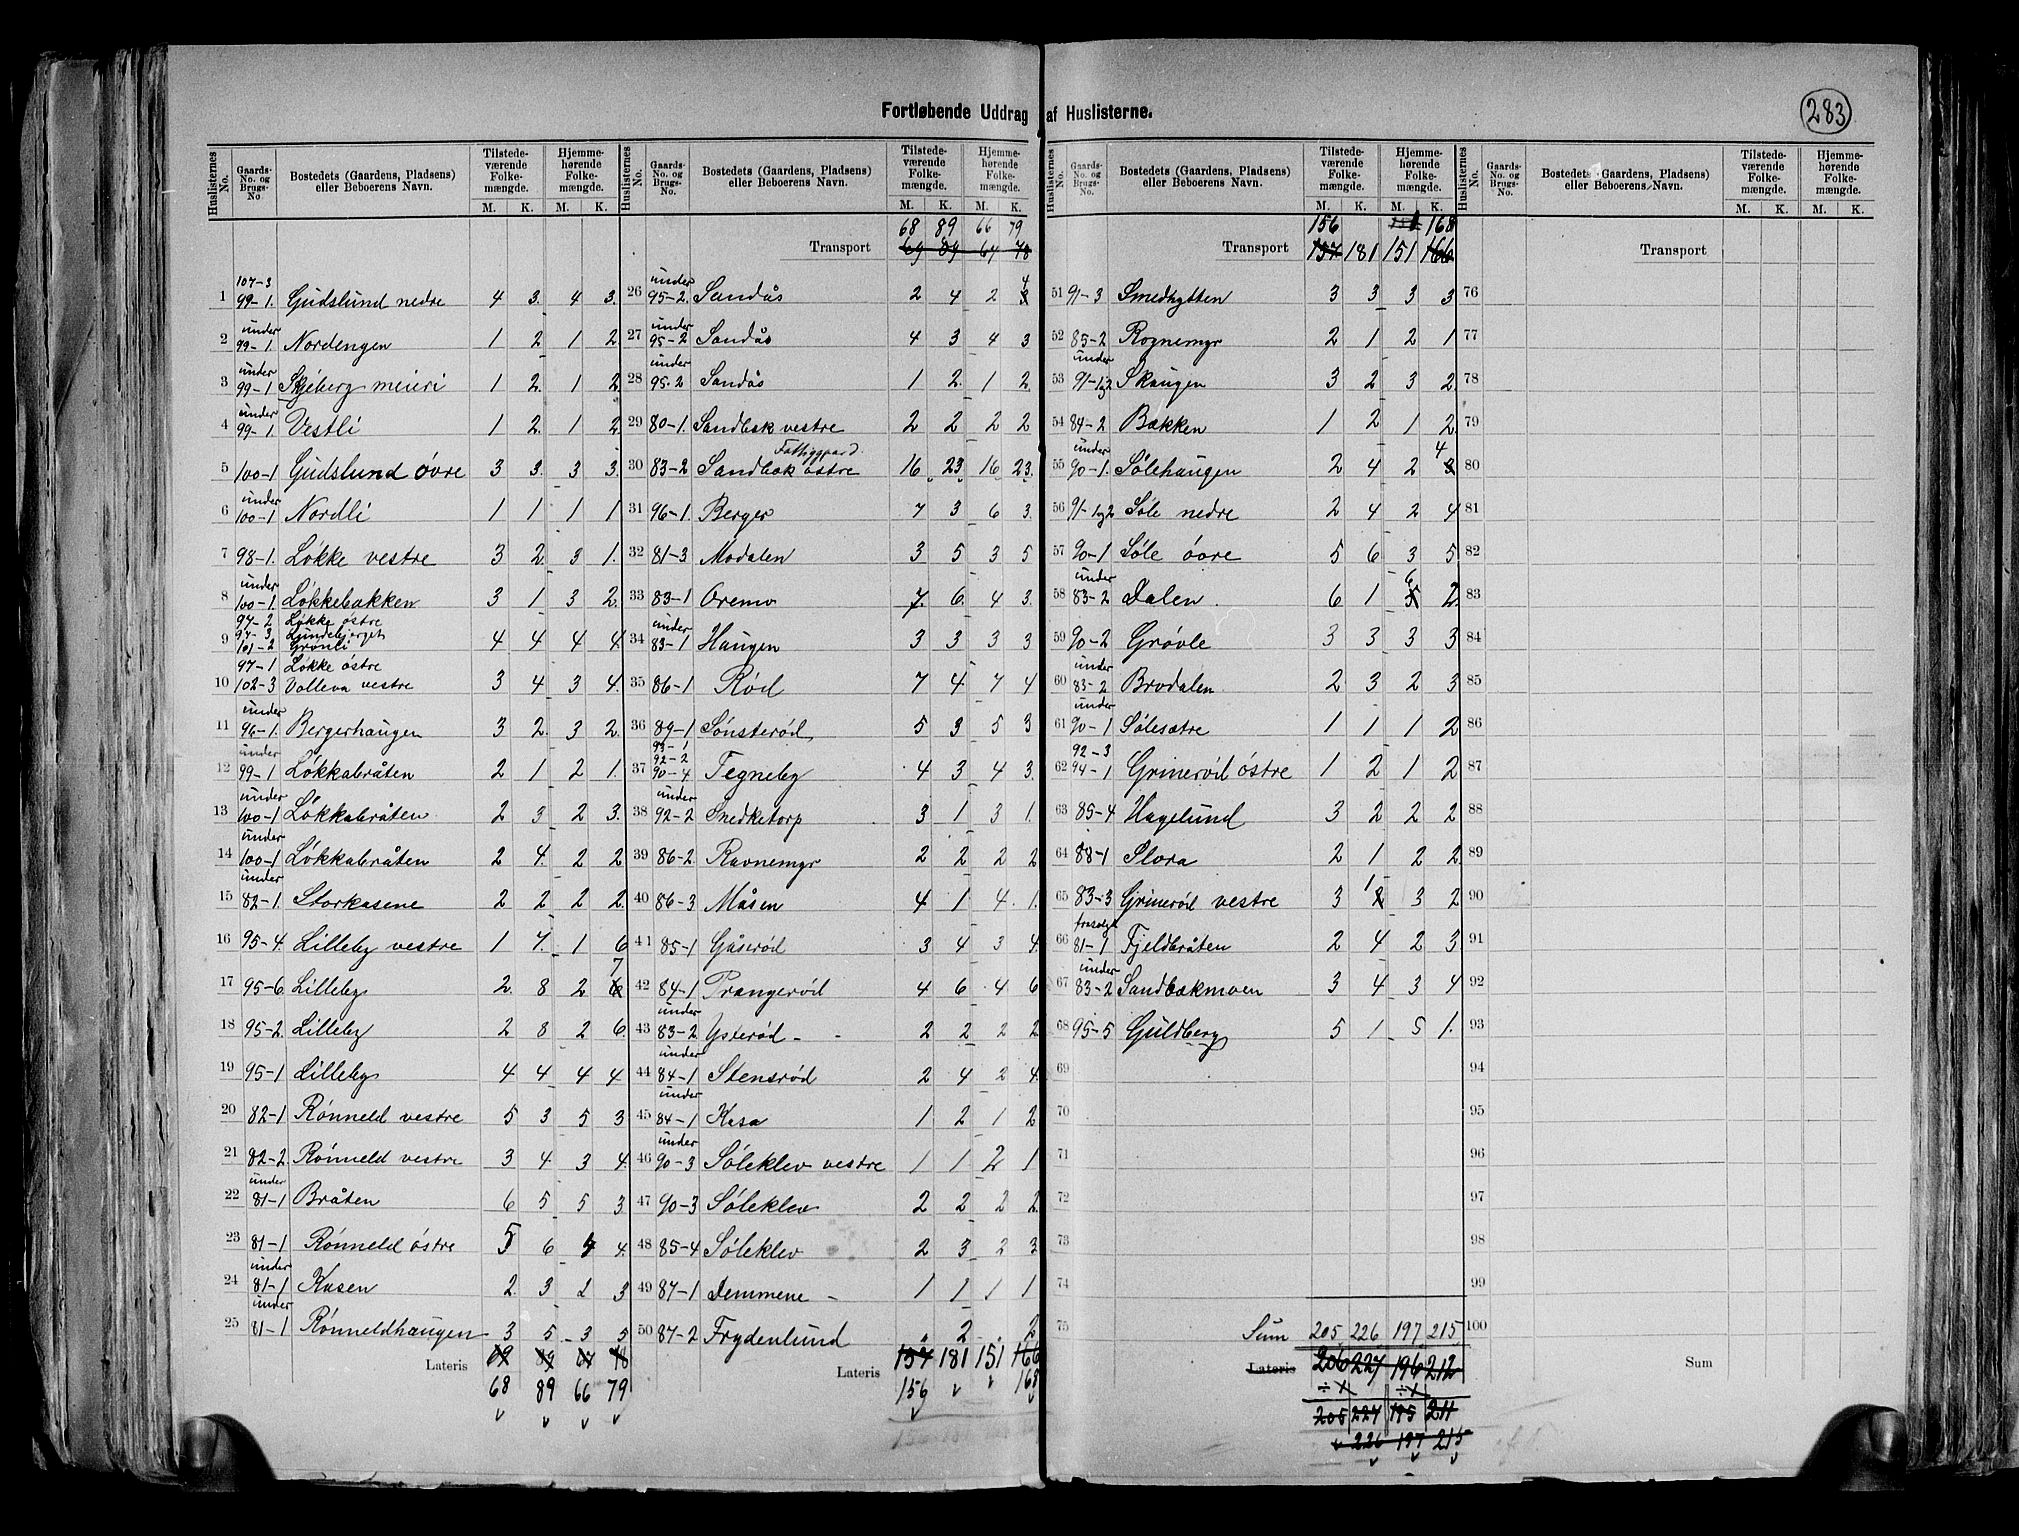 Fortløbende Uddrag af Huslisterne.
283
Huslisternes No. | Gaards-No. og Brugs-No | Bostedets (Gaardens, Pladsens) eller Beboerens Navn. | Tilstedeværende Folkemængde. M. K. | Hjemmehørende Folkemængde. M. K.
1 107-3 99-1. Gudslund nedre 4 3. 4 3.
2 under 99-1 Nordengen 1 2 1 2
3 under 99-1 Skjeberg meieri 1 2. 1 2
4 under 99-1. Vestli 1 2. 1 2
5 100-1 Gudslund øvre 3 3. 3 3.
6 under 100-1 Nordli 1 1 1 1
7 98-1. Løkke vestre 3 2. 3 1.
8 under 100-1. Løkkebakken 3 1 3 2.
9 97-2 Løkke østre
97-3 Lundebjerget 4 4 4 4.
101-2 Grønli
10 97-1 Løkke østre
102-3 Volleva vestre 3 4 3 4.
11 under 96-1. Bergerhaugen 3 2. 3 2.
12 under 99-1 Løkkabråten 2 1 2 1.
13 under 100-1 Løkkabråten 2 3 2 3.
14 under 100-1 Løkkabråten 2 4. 2 2
15 under 82-1. Storkasene 2 2 2 2.
16 95-4. Lilleby vestre 1 7. 1 6
17 95-6. Lilleby 2. 8 2 6 7
18 95-2. Lilleby 2 8 2 6.
19 95-1 Lilleby 4 4 4 4
20 82-1 Rønneld vestre 5 3 5 3
21 82-2. Rønneld vestre 3 4 3 4.
22 under 81-1 Bråten 6 5 5 3
23 81-1 Rønneld østre 5 6 4 4.
24 under 81-1 Kasen 2. 3 2 3
25 under 81-1 Rønneldhaugen 3 5 3 5
Lateris 69 89 67 78
68 89 66 79
Huslisternes No. | Gaards-No. og Brugs-No. | Bostedets (Gaardens, Pladsens) eller Beboerens Navn. | Tilstedeværende Folkemængde. M. K. | Hjemmehørende Folkemængde. M. K.
68 89 66 79
Transport 69 89 67 78
26 under 95-2. Sandås 2 4 2 3 4
27 under 95-2 Sandås 4 3 4 3
28 under 95-2 Sandås 1 2. 1 2.
29 80-1. Sandbæk vestre 2 2 2 2
Fattiggaard.
30 83-2 Sandbæk østre 16 23 16 23.
31 96-1. Berger 7 3 6 3.
32 81-3 Modalen 3 5 3 5
33 83-1 Oremo 7. 6. 4 3.
34 under 83-1 Haugen 3 3 3 3
35 86-1 Rød 7 4. 7 4
36 89-1 Sønsterød 5 3 5 3
37 93-1 92-2 90-4 Tegneby 4 3 4 3.
38 under 92-2 Snedketorp 3 1 3 1.
39 86-2 Ravnemyr 2 2 2 2
40 86-3 Måsen 4 1 4. 1.
41 85-1 Gåserød 3 4 3 4.
42 84-1 Prangerød 4 6 4 6
43 under 83-2 Ysterød - - 2 2 2 2
44 under 84-1 Stensrød 2 4 2 4.
45 under 84-1 Kasa 1 2 1 2
46 under 90-3 Søleklev vestre 1 1 2 1
47 90-3 Søleklev 2 2 2 2.
48 85-4 Søleklev 2 3 2 3
49 87-1 Demmene - 1 1 1 1
50 87-2 Frydenlund . 2 . 2
Lateris 157 181 151 166
156 168
Huslisternes No. | Gaards-No. og Brugs-No. | Bostedets (Gaardens, Pladsens) eller Beboerens Navn. | Tilstedeværende Folkemængde. M. K. | Hjemmehørende Folkemængde. M. K.
156 168
Transport 157 181 151 166
51 91-3 Smedhytten 3 3 3 3
52 85-2 Rognemyr 2 1 2 1
53 under 91-1og2 Skaugen 3 2 3 2
54 84-2 Bækken 1 2 1 2
55 under 90-1. Sølehaugen 2 4 2 3 4
56 91-1og2 Søle nedre 2 4 2 4
57 90-1 Søle øvre 5 6 3 5
58 under 83-2 Dalen 6 1 5 6 2.
59 90-2 Grøvle 3 3 3 3
60 under 83-2 Brodalen 2 3 2 3
61 under 90-1 Sølesætre 1 1 1 2
62 92-3 94-1 Grinerød østre 1 2 1 2
63 85-4 Hagelund 3 2 2 2
64 88-1 Slora 2 1 2 2.
65 83-3 Grinerød vestre 3 2 1 3 2
66 81-1 Fjeldbråten 2 4 2 3
67 under 83-2 Sandbækmoen 3 4 3 4
68 95-5 Guldberg 5 1 5 1.
69
70
71
72
73
74
75 Sum 205 226 197 215
Lateris 206 227 196 212
÷1 ÷1
205 227 195 211
226 197 215
Huslisternes No. | Gaards-No. og Brugs-No. | Bostedets (Gaardens, Pladsens) eller Beboerens Navn. | Tilstedeværende Folkemængde. M. K. | Hjemmehørende Folkemængde. M. K.
Transport
76
77
78
79
80
81
82
83
84
85
86
87
88
89
90
91
92
93
94
95
96
97
98
99
100
Sum